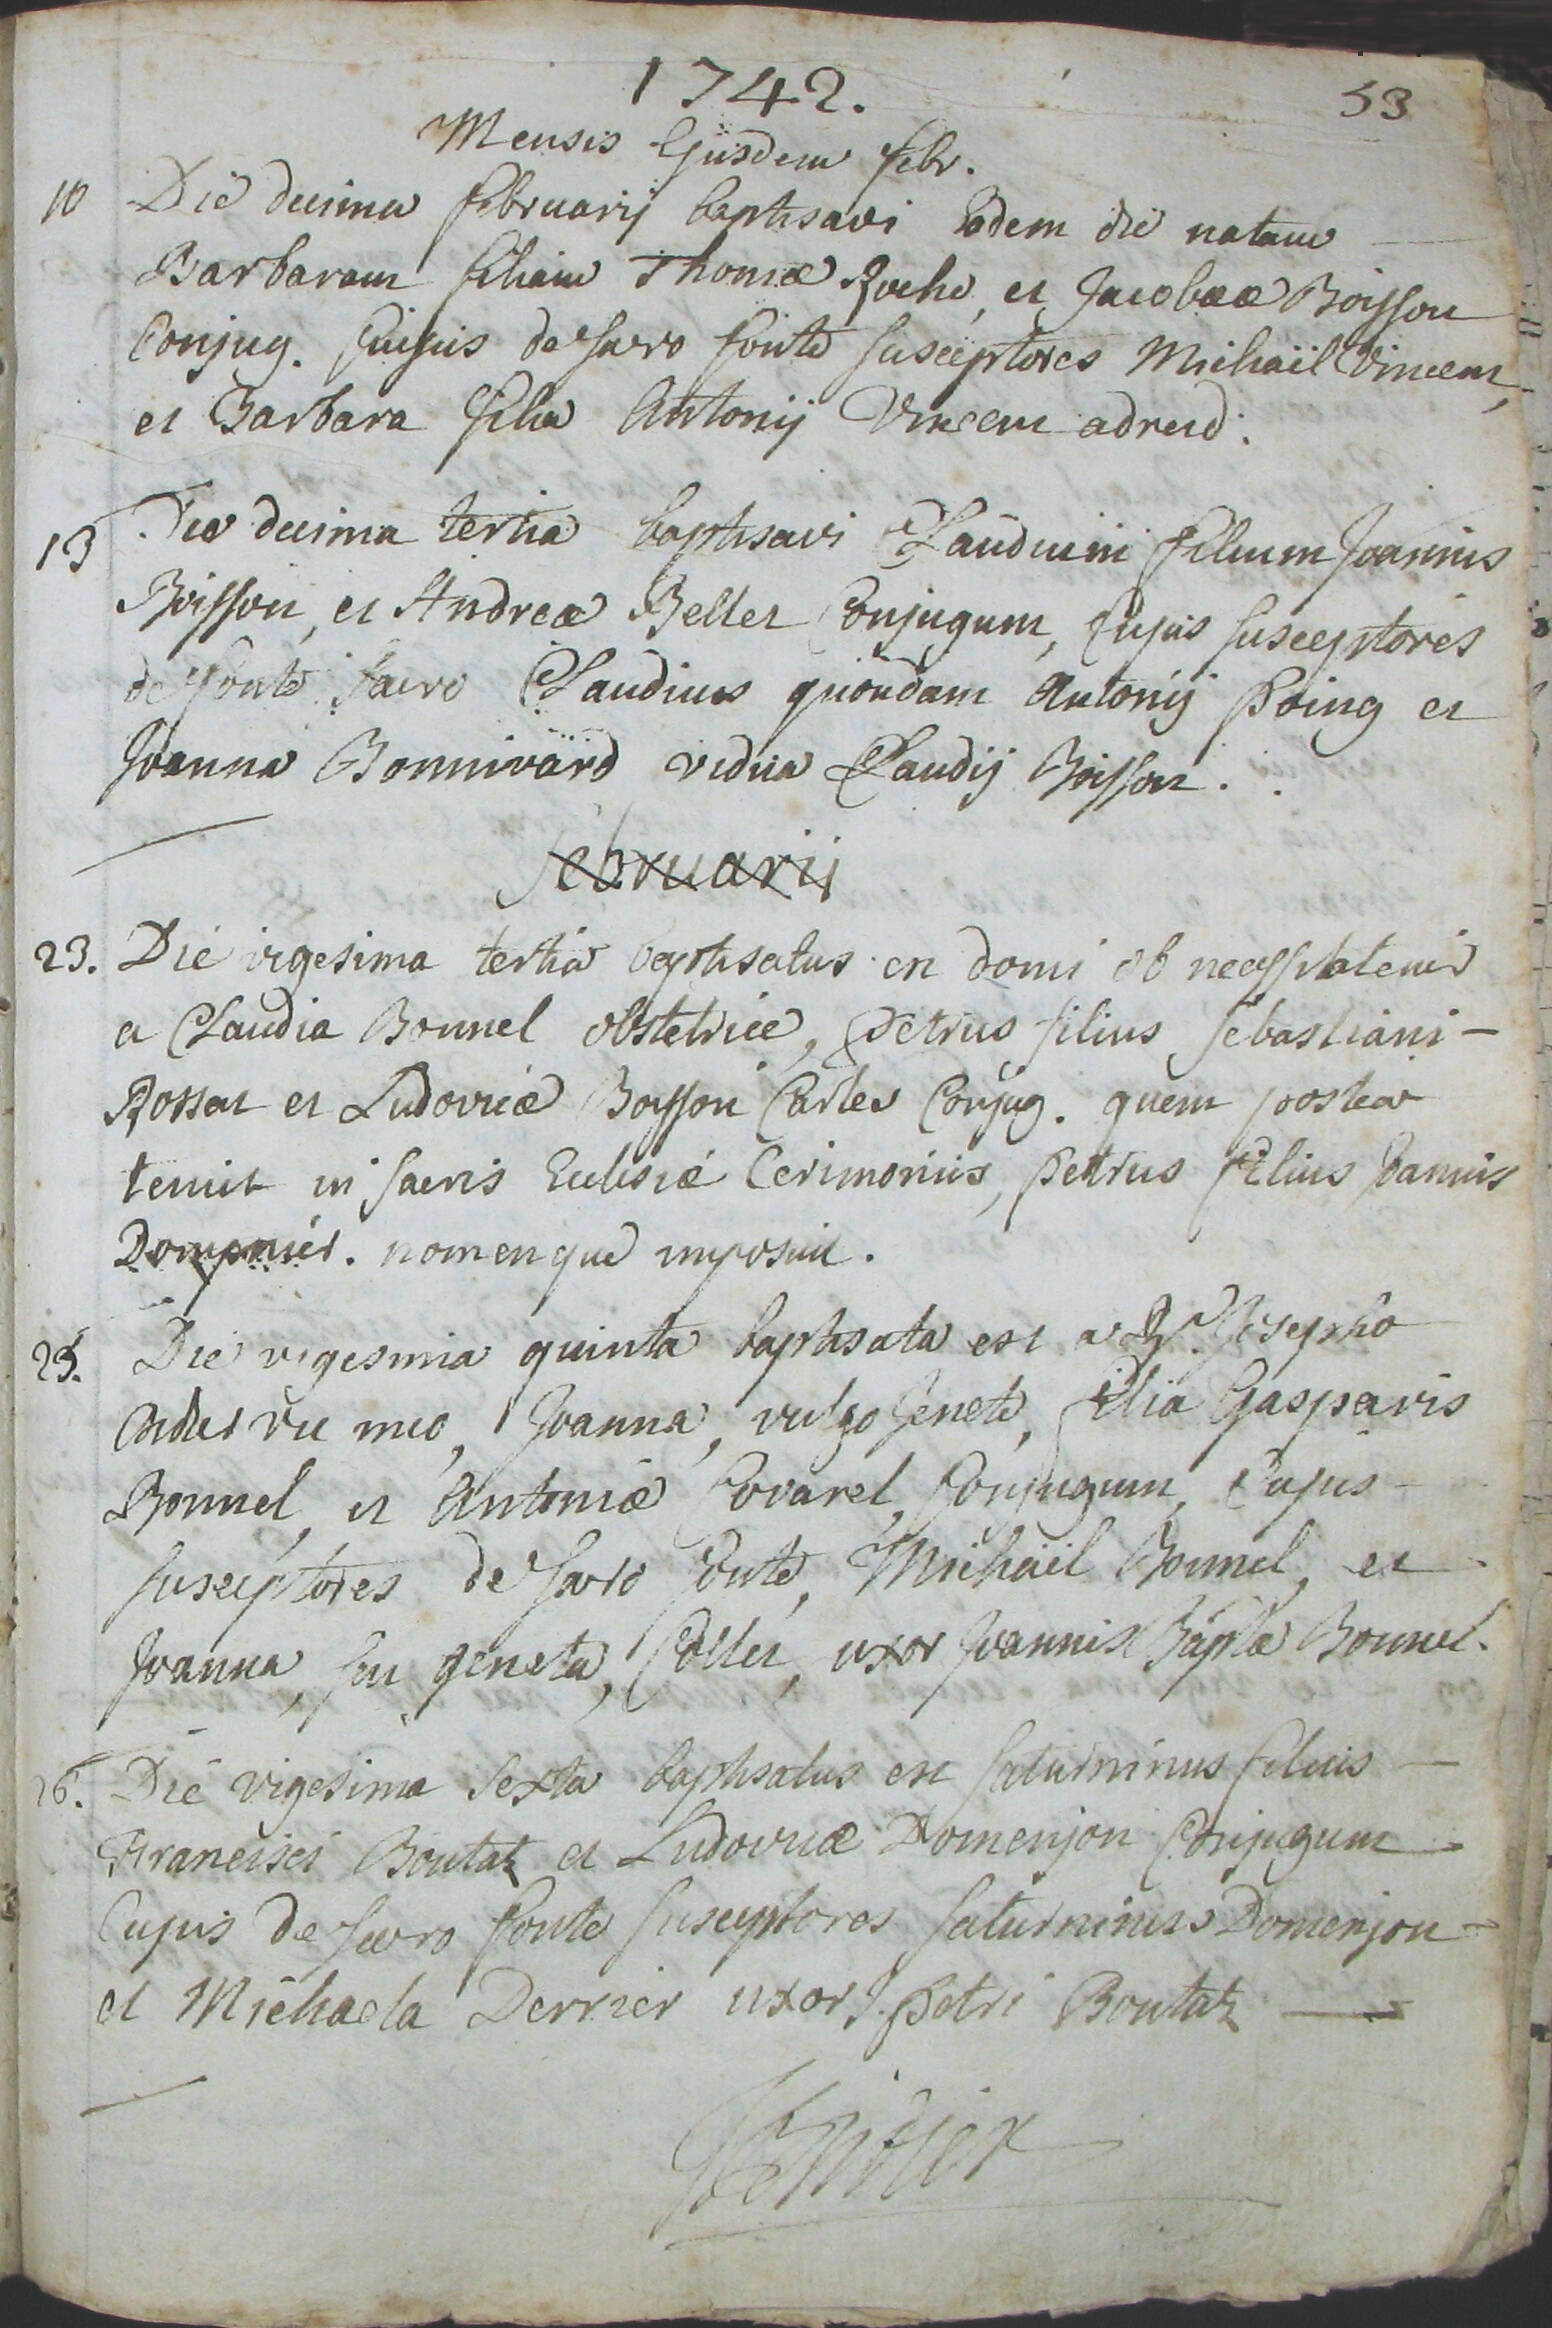 1742.
53
Mensis Ejusdem febr.
10 Die decima februarij baptisavi Eadem die natam
Barbaram filiam Thomæ Roche, et Jacobææ Boisson
Conjug. Cujus de Sacro fonte Susceptores Michaël Vincent,
et Barbara filia Antonij Vincent
13 Die decima tertia baptisavi Claudium filium Joannis
Boisson, et Andreæ Bellet Conjugum, Cujus Susceptores
de fonte Sacro Claudius quondam Antonij Poing et
Joanna Bonnivard vidua Claudij Boisson.
februarij
23. Die vigesima tertia baptisatus est domi ob necessitatem
a Claudia Bonnel obstetrice, Petrus filius Sebastiani
Rossat et Ludovicæ Boisson Carles Conjug. quem postea
tenuit in Sacris Eclesiæ Cerimoniis, Petrus filius Joannis
Dompnier. nomenque imposuit.
25. Die vigesima quinta baptisata est a Rd. Josepho
vic meo, Joanna, vulgo Jenete, filia Gasparis
Bonnel, et Antoniæ Covarel, Conjugum, Cujus
Susceptores de Sacro fonte, Michaël Bonnel, et
Joanna, seu geneta, Collet, uxor Joannis Baptæ Bonnel.
26. Die vigesima Sexta baptisatus est Saturninus filius
Francisci Boutaz et Ludovicæ Domenjon Conjugum
Cujus de Sacro fonte Susceptores Saturninus Domenjon
et Michaela Derrier uxor J. Petri Boutaz